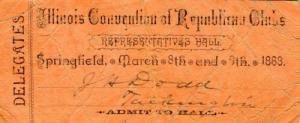 DELEGATES
Illinois Convention of Republican Clubs
REPRESENTATIVES HALL
Springfield, March 8th and 9th, 1883.
J H Dodd
ADMIT TO HALL